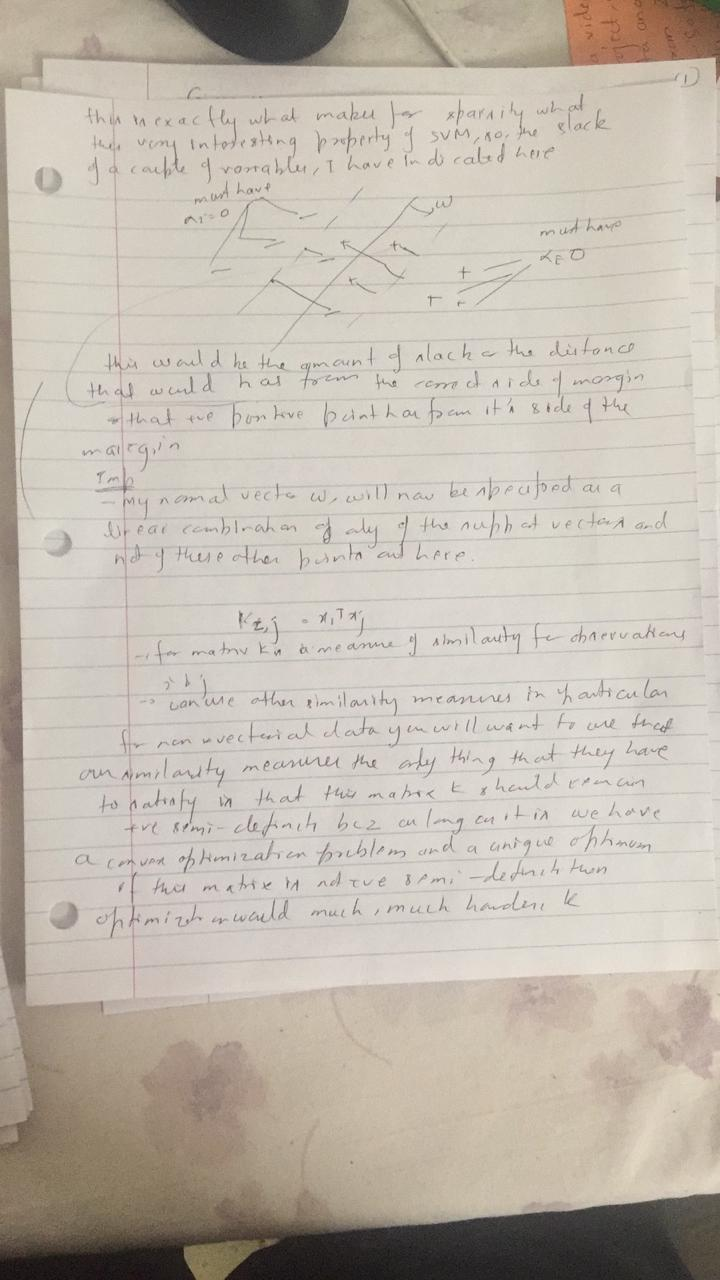 (1)
this is exactly what makes for sparsity what
this very interesting property of SVM, so, the slack
of a couple of variables, I have indicated here
must have
αi=0
w
must have
αi=0
this would be the amount of slack or the distance
that would has from the correct side of margin
that +ve positive point has from it's side of the
margin
Imp
- my normal vector w, will now be specified as a
linear combination of only of the support vectors and
not of these other points out here.
Ki,j = xiTxj
-, for matrix K is a measure of similarity for observations
i & j
-> can use other similarity measures in particular
for non vectorial data you will want to use that
our similarity measures the only thing that they have
to satisfy is that this matrix K should remain
+ve semi-definite bcz as long as it is we have
a convex optimization problem and a unique optimum
if this matrix is not +ve semi-definite then
optimizt would much, much harder, K